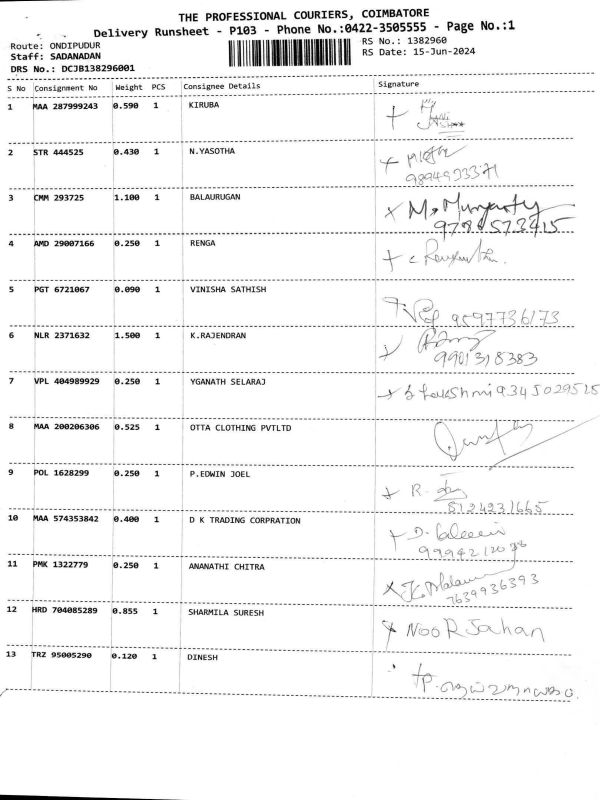 THE PROFESSIONAL COURIERS, COIMBATORE
Delivery Runsheet - P103 - Phone No.:0422-3505555 - Page No.:1
Route: ONDIPUDUR RS No.: 1382960
Staff: SADANADAN RS Date: 15-Jun-2024
DRS No.: DCJB138296001
S No Consignment No Weight PCS Consignee Details Signature
1 MAA 287999243 0.590 1 KIRUBA
2 STR 444525 0.430 1 N.YASOTHA
3 CMM 293725 1.100 1 BALAURUGAN
9786573415
4 AMD 29007166 0.250 1 RENGA
5 PGT 6721067 0.090 1 VINISHA SATHISH
9597736173
6 NLR 2371632 1.500 1 K.RAJENDRAN
9901318383
7 VPL 404989929 0.250 1 YGANATH SELARAJ
8 MAA 200206306 0.525 1 OTTA CLOTHING PVTLTD
9 POL 1628299 0.250 1 P.EDWIN JOEL
8124231665
10 MAA 574353842 0.400 1 D K TRADING CORPRATION
11 PMK 1322779 0.250 1 ANANATHI CHITRA
7639936393
12 HRD 704085289 0.855 1 SHARMILA SURESH NooR Jahan
13 TRZ 95005290 0.120 1 DINESH